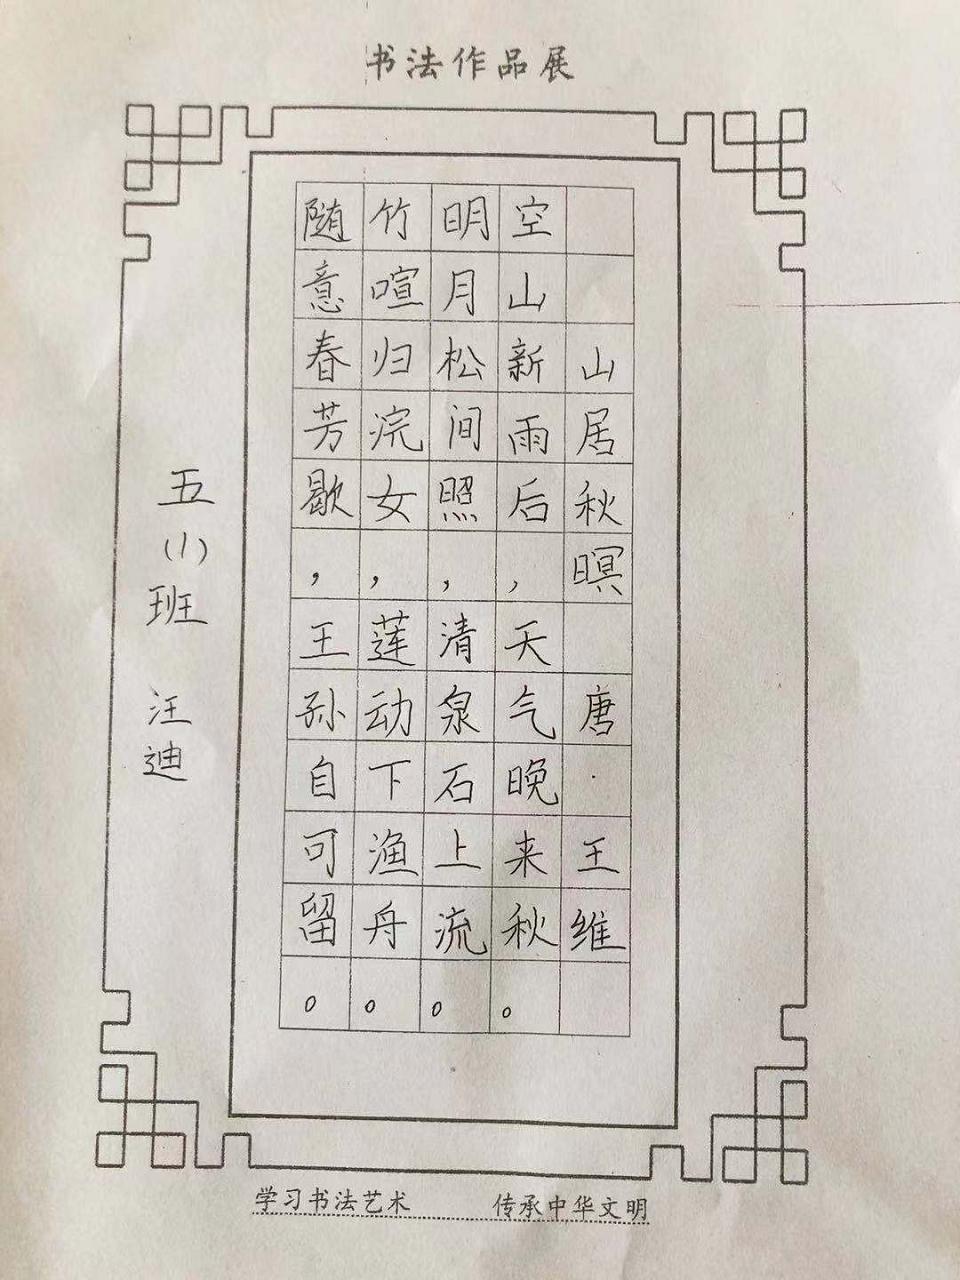 书法作品展
山居秋暝 唐 王维
空山新雨后，天气晚来秋。
明月松间照，清泉石上流。
竹喧归浣女，莲动下渔舟。
随意春芳歇，王孙自可留。
五（1）班 汪迪
学习书法艺术 传承中华文明